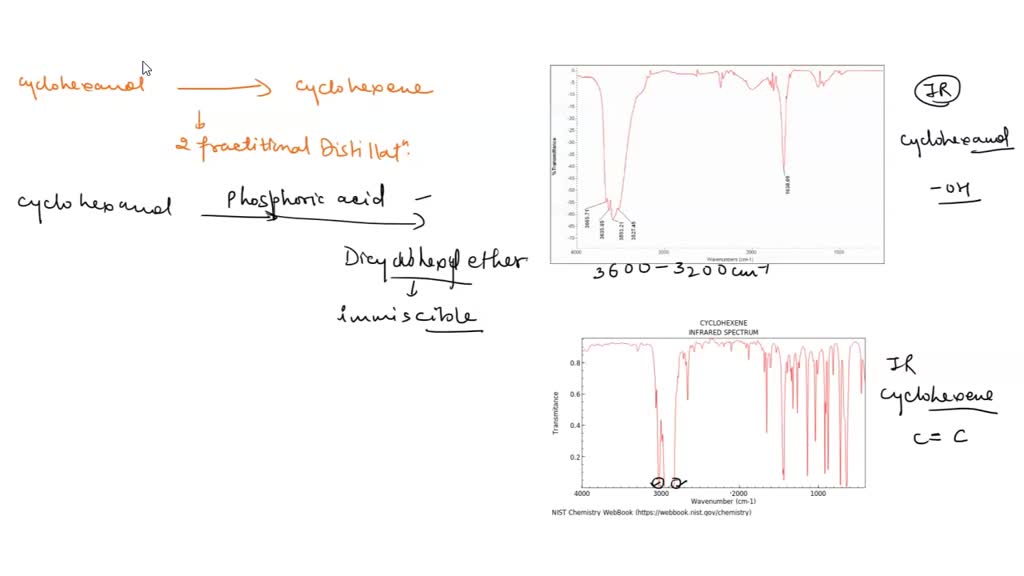 cyclohexanol → cyclohexene
↓
2 fractitional Distillatⁿ.
cyclohexanol Phosphoric acid –
Dicyclohexyl ether
↓
immiscible
%Transmittance
3665.71
1638.00
4000
Wavenumbers (cm-1)
3600-3200cm⁻¹
IR
cyclohexanol
-OH
CYCLOHEXENE
INFRARED SPECTRUM
Transmitance
0.8
0.6
0.4
0.2
4000 3000 2000 1000
Wavenumber (cm-1)
NIST Chemistry WebBook (https://webbook.nist.gov/chemistry)
IR
cyclohexene
C= C